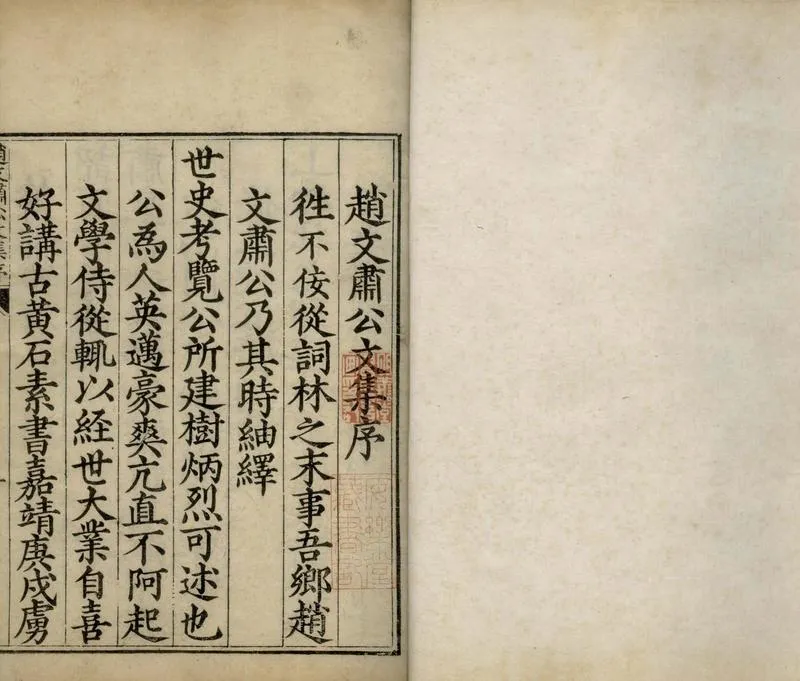 趙文肅公文集序
徃不佞從詞林之末事吾鄉趙
文肅公乃其時紬繹
世史考覽公所建樹炳烈可述也
公爲人英邁豪爽亢直不阿起
文學侍從輒以經世大業自喜
好講古黃石素書嘉靖庚戌虜
趙文肅公文集序